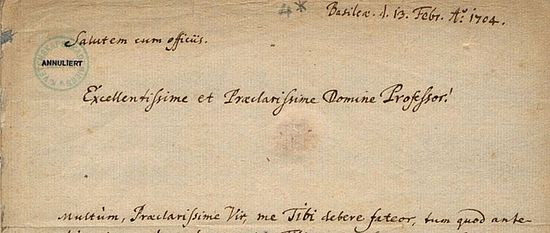 Basileæ. d. 13. Febr. Aº. 1704.
Salutem cum officiis.
ANNULIERT
Excellentissime et Præclarissime Domine Professor!
Multùm, Præclarissime Vir, me Tibi debere fateor, tum quod ante-